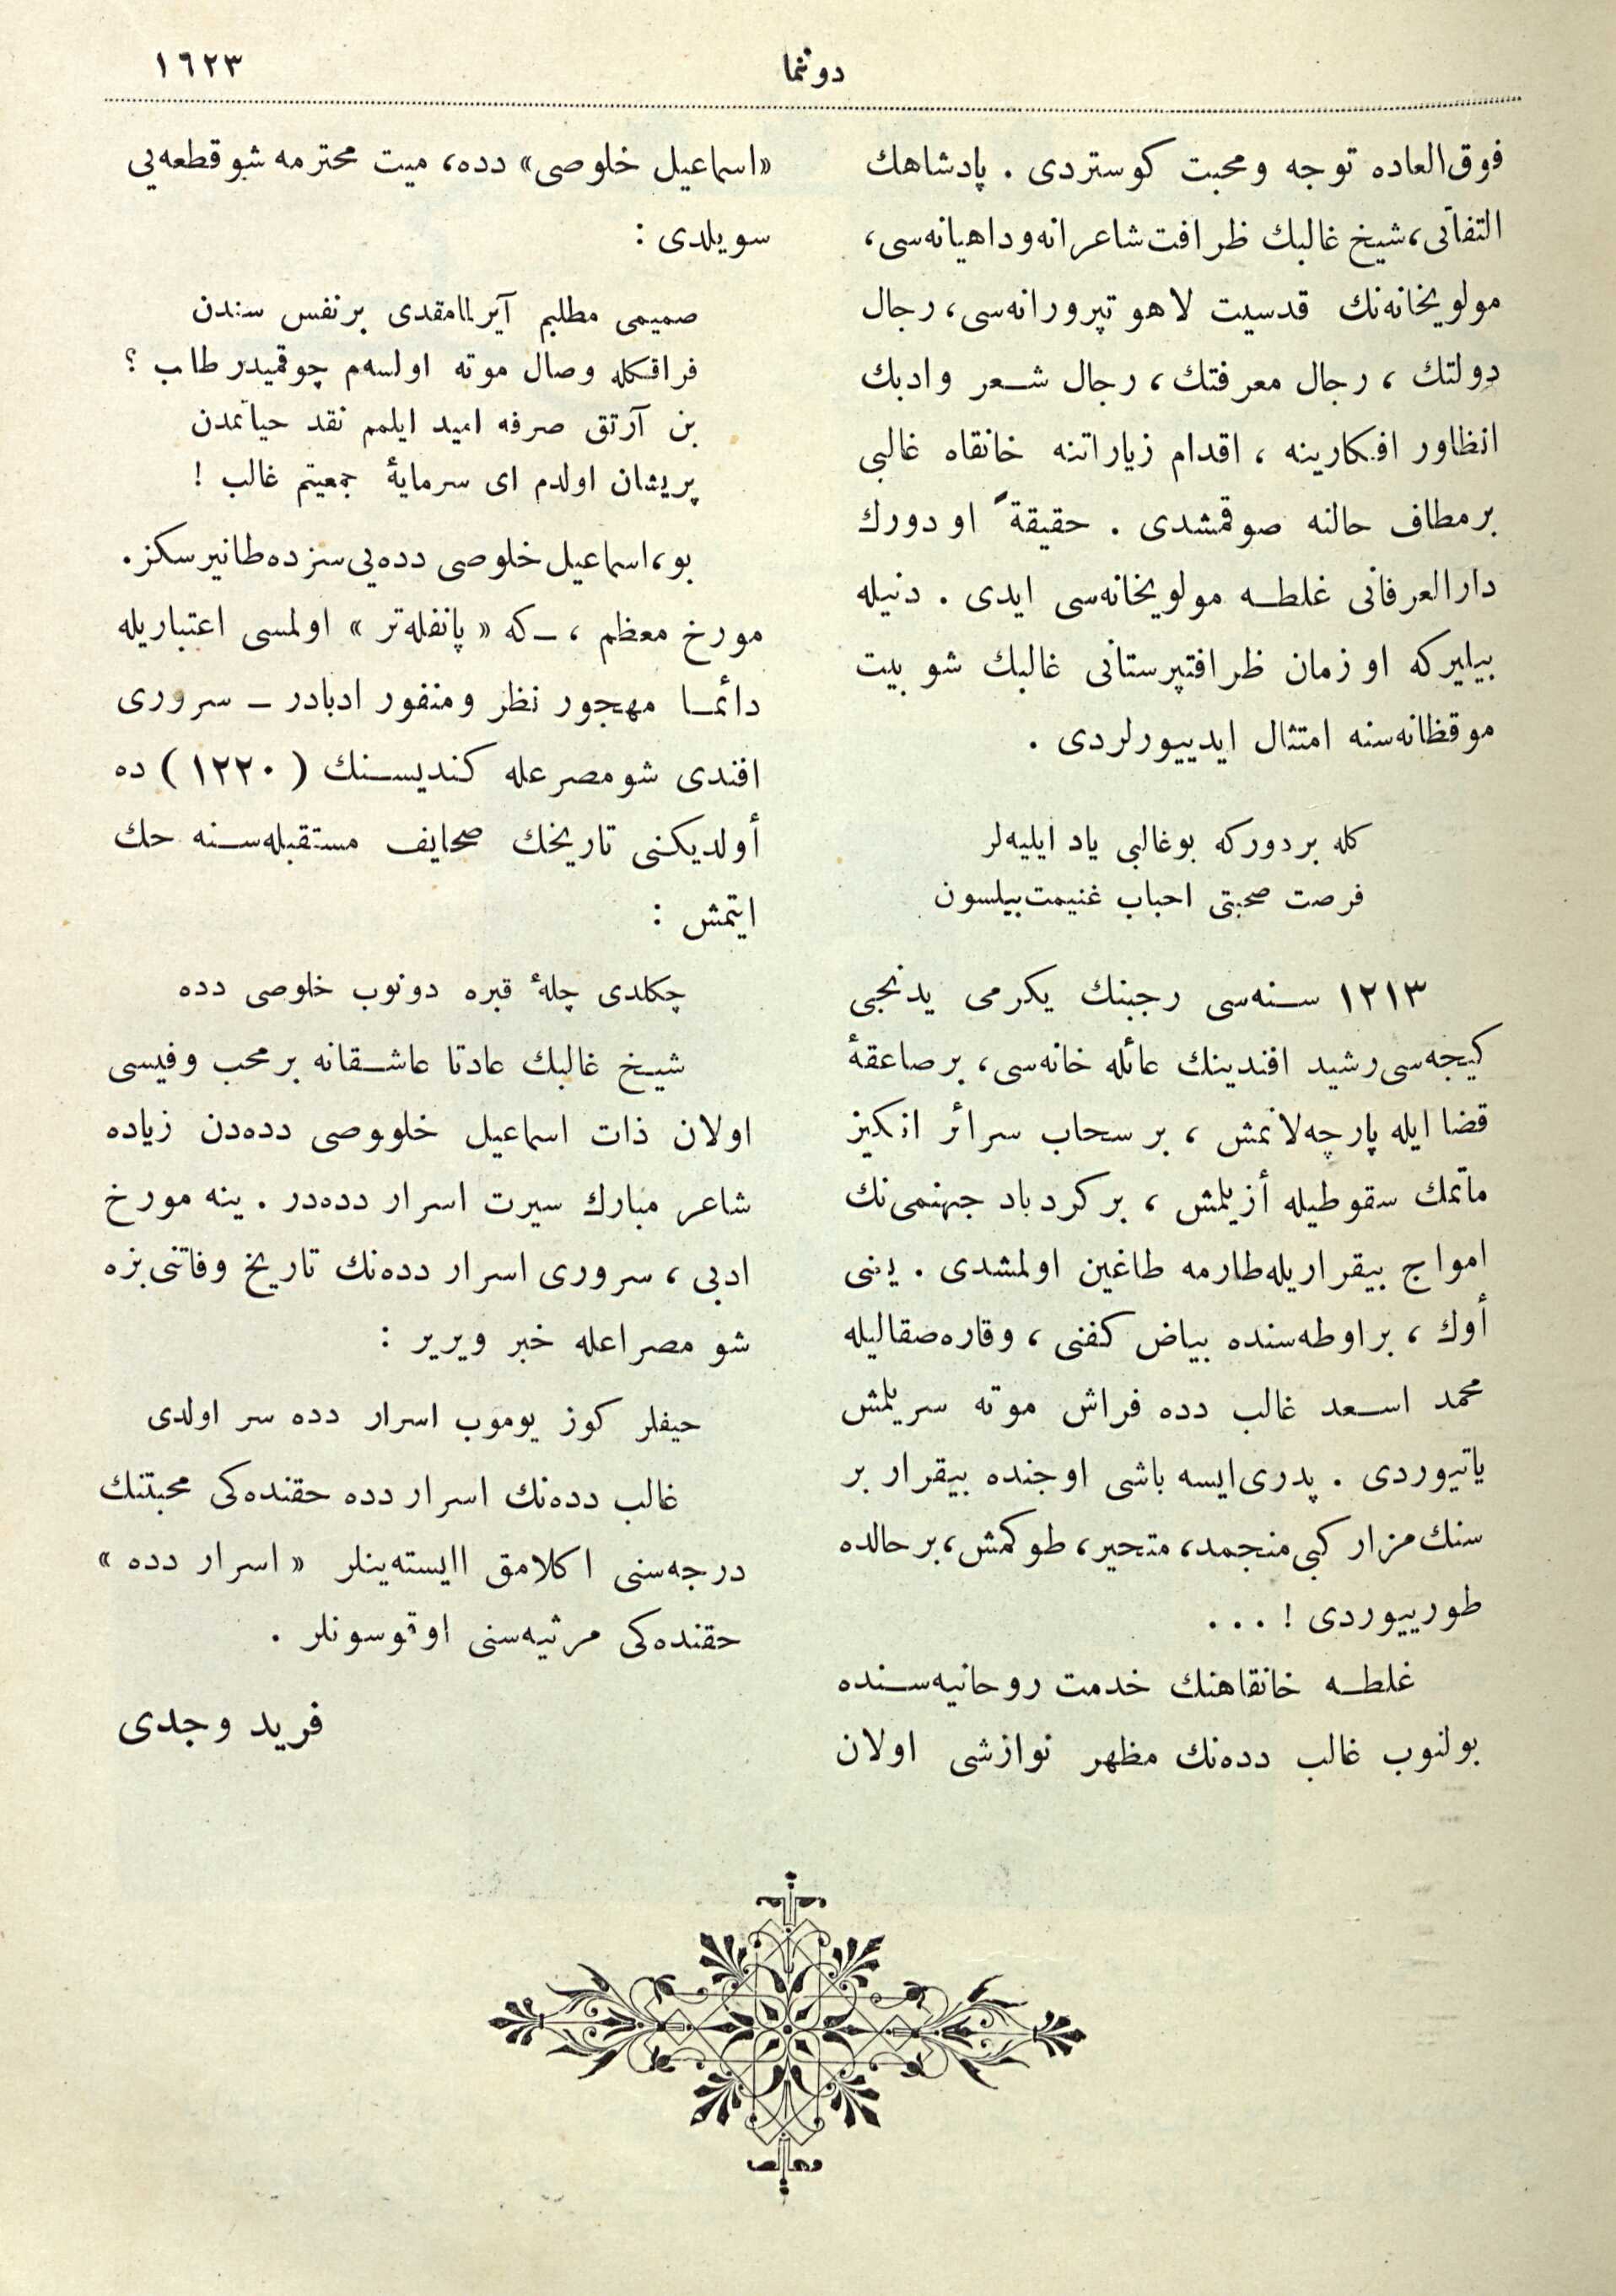 دوتنما
١٦٢٣
فوق‌العاده توجه ومحبت كوستردى . پادشاهك
التفاتى، شيخ غالبك ظرافت شاعرانه‌وداهيانه‌سى،
مولويخانه‌نك قدسيت لاهوتپرورانه‌سى، رجال
دولتك ، رجال معرفتك، رجال شعر وادبك
انظاور افكارينه ، اقدام زياراتنه خانقاه غالبى
برمطاف حالنه صوقمشدى . حقيقةً او دورك
دارالعرفانى غلطه مولويخانه‌سى ايدى . دنيله
بيليركه او زمان ظرافتپرستانى غالبك شو بيت
موقظانه‌سنه امتثال ايدييورلردى .
كله بردوركه بوغالبى ياد ايليه‌لر
فرصت صحبتى احباب غنيمت‌بيلسون
١٢١٣ سنه‌سى رجبنك يكرمى يدنجى
كيجه‌سى رشيد افندينك عائله خانه‌سى، برصاعقهٔ
قضا ايله پارچه‌لانمش ، بر سحاب سرائر انكيز
ماتمك سقوطيله أزيلمش ، بركردباد جهنمى‌نك
امواج بيقراريله‌طارمه طاغين اولمشدى . يعنى
أوك ، براوطه‌سنده بياض كفنى ، وقاره‌صقاليله
محمد اسعد غالب دده فراش موته سريلمش
ياتيوردى . پدرى‌ايسه باشى اوجنده بيقرار بر
سنك مزار كبى منجمد، متحير، طوكمش، برحالده
طورييوردى ! ...
غلطه خانقاهنك خدمت روحانيه‌سنده
بولنوب غالب دده‌نك مظهر نوازشى اولان
«اسماعيل خلوصى» دده، ميت محترمه شبوقطعه‌يى
سويلدى :
صميمى مطلبم آيرلمامقدى برنفس سندن
فراقكله وصال موته اولسه‌م چوقميدر طالب ؟
بن آرتق صرفه اميد ايلمم نقد حياتمدن
پريشان اولدم اى سرمايهٔ جمعيتم غالب !
بو، اسماعيل خلوصى دده‌يى سزده‌طانيرسكز.
مورخ معظم ، ــ كه « پانفله‌تر » اولمسى اعتباريله
دائما مهجور نظر ومنفور ادبادر ــ سرورى
افندى شومصرعله كنديسنك ( ١٢٢٠ ) ده
أولديكنى تاريخك صحايف مستقبله‌سنه حك
ايتمش :
چكلدى چلهٔ قبره دونوب خلوصى دده
شيخ غالبك عادتا عاشقانه برمحب وفيسى
اولان ذات اسماعيل خلووصى دده‌دن زياده
شاعر مبارك سيرت اسرار دده‌در . ينه مورخ
ادبى ، سرورى اسرار دده‌نك تاريخ وفاتنى‌بزه
شو مصراعله خبر ويرير :
حيفلر كوز يوموب اسرار دده سر اولدى
غالب دده‌نك اسرار دده حقنده‌كى محبتنك
درجه‌سنى اكلامق اايسته‌ينلر « اسرار دده »
حقنده‌كى مرثيه‌سنى اوقوسونلر .
فريد وجدى